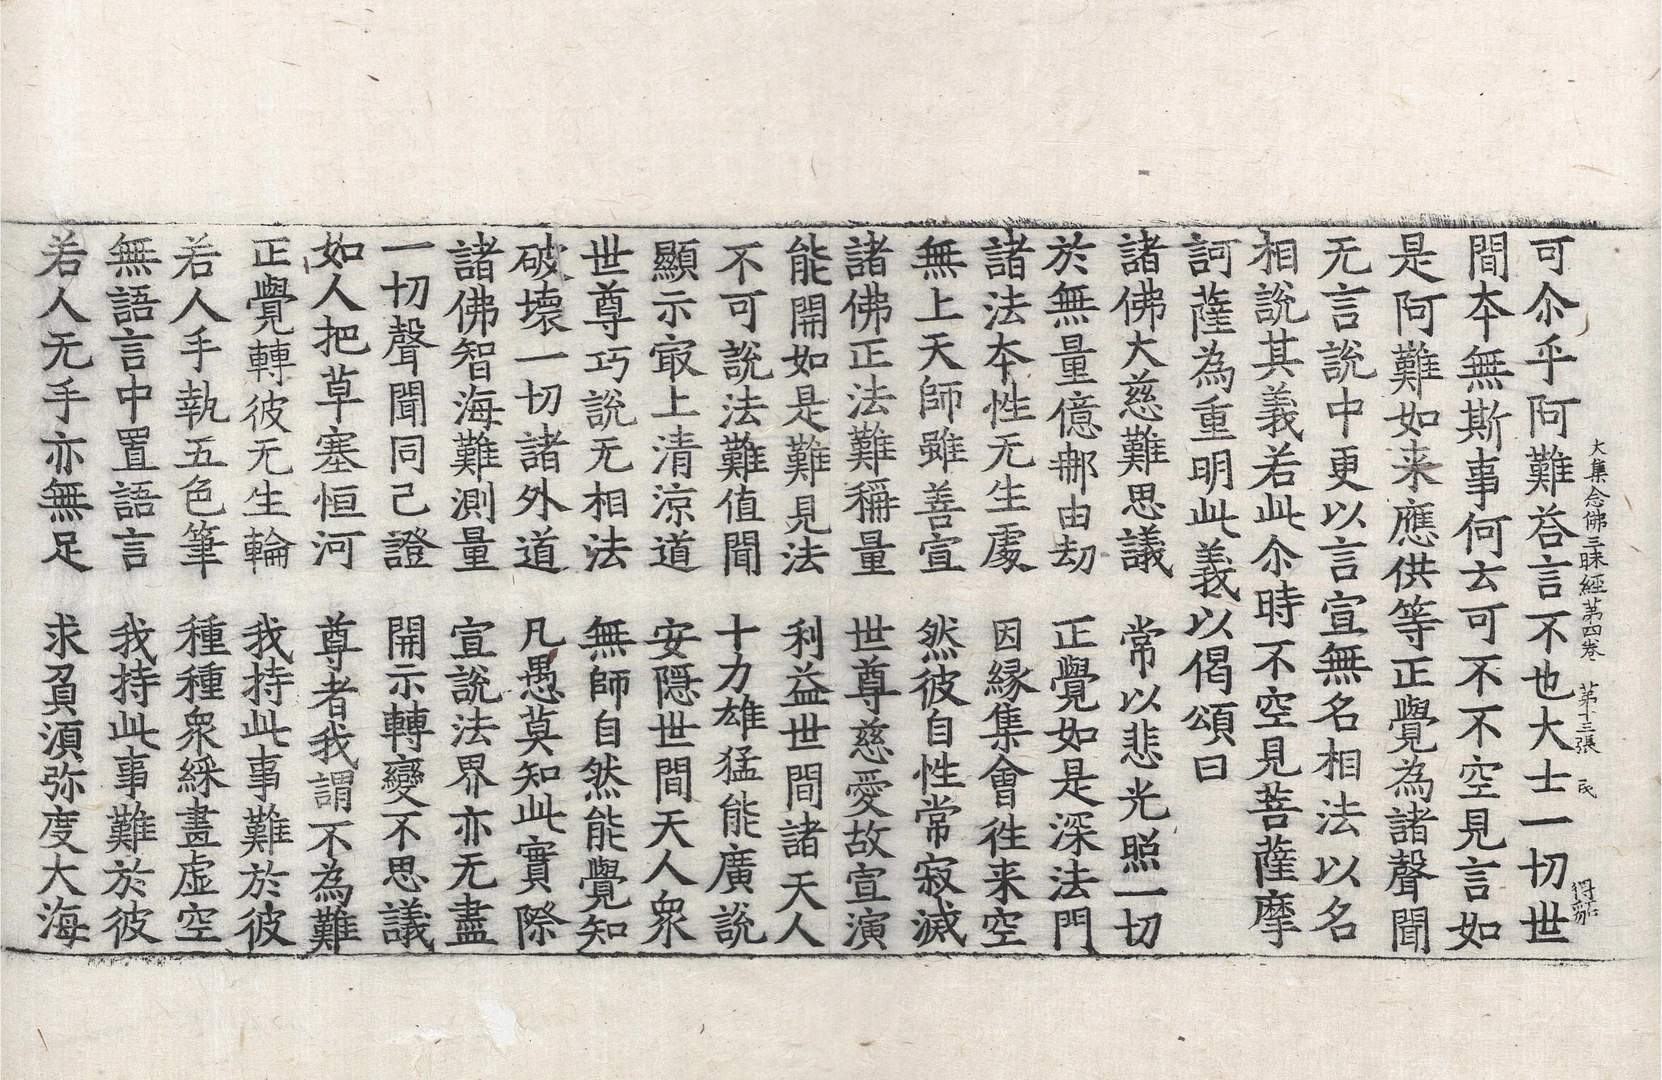 大集念佛三昧經第四卷　第十三張　民　得韶
可尒乎阿難荅言不也大士一切世
間本無斯事何云可不不空見言如
是阿難如来應供等正覺為諸聲聞
无言說中更以言宣無名相法以名
相說其義若此尒時不空見菩薩摩
訶薩為重明此義以偈頌曰
諸佛大慈難思議　常以悲光照一切
於無量億郍由劫　正覺如是深法門
諸法本性无生處　因縁集會徃来空
無上天師雖善宣　然彼自性常寂滅
諸佛正法難稱量　世尊慈愛故宣演
能開如是難見法　利益世間諸天人
不可說法難值聞　十力雄猛能廣說
顯示㝡上清涼道　安隱世間天人衆
世尊巧說无相法　無師自然能覺知
破壞一切諸外道　凡愚莫知此實際
諸佛智海難測量　宣說法界亦无盡
一切聲聞同己證　開示轉變不思議
如人把草塞恒河　尊者我謂不為難
正覺轉彼无生輪　我持此事難於彼
若人手執五色筆　種種衆綵畫虛空
無語言中置語言　我持此事難於彼
若人无手亦無足　求負湏弥度大海